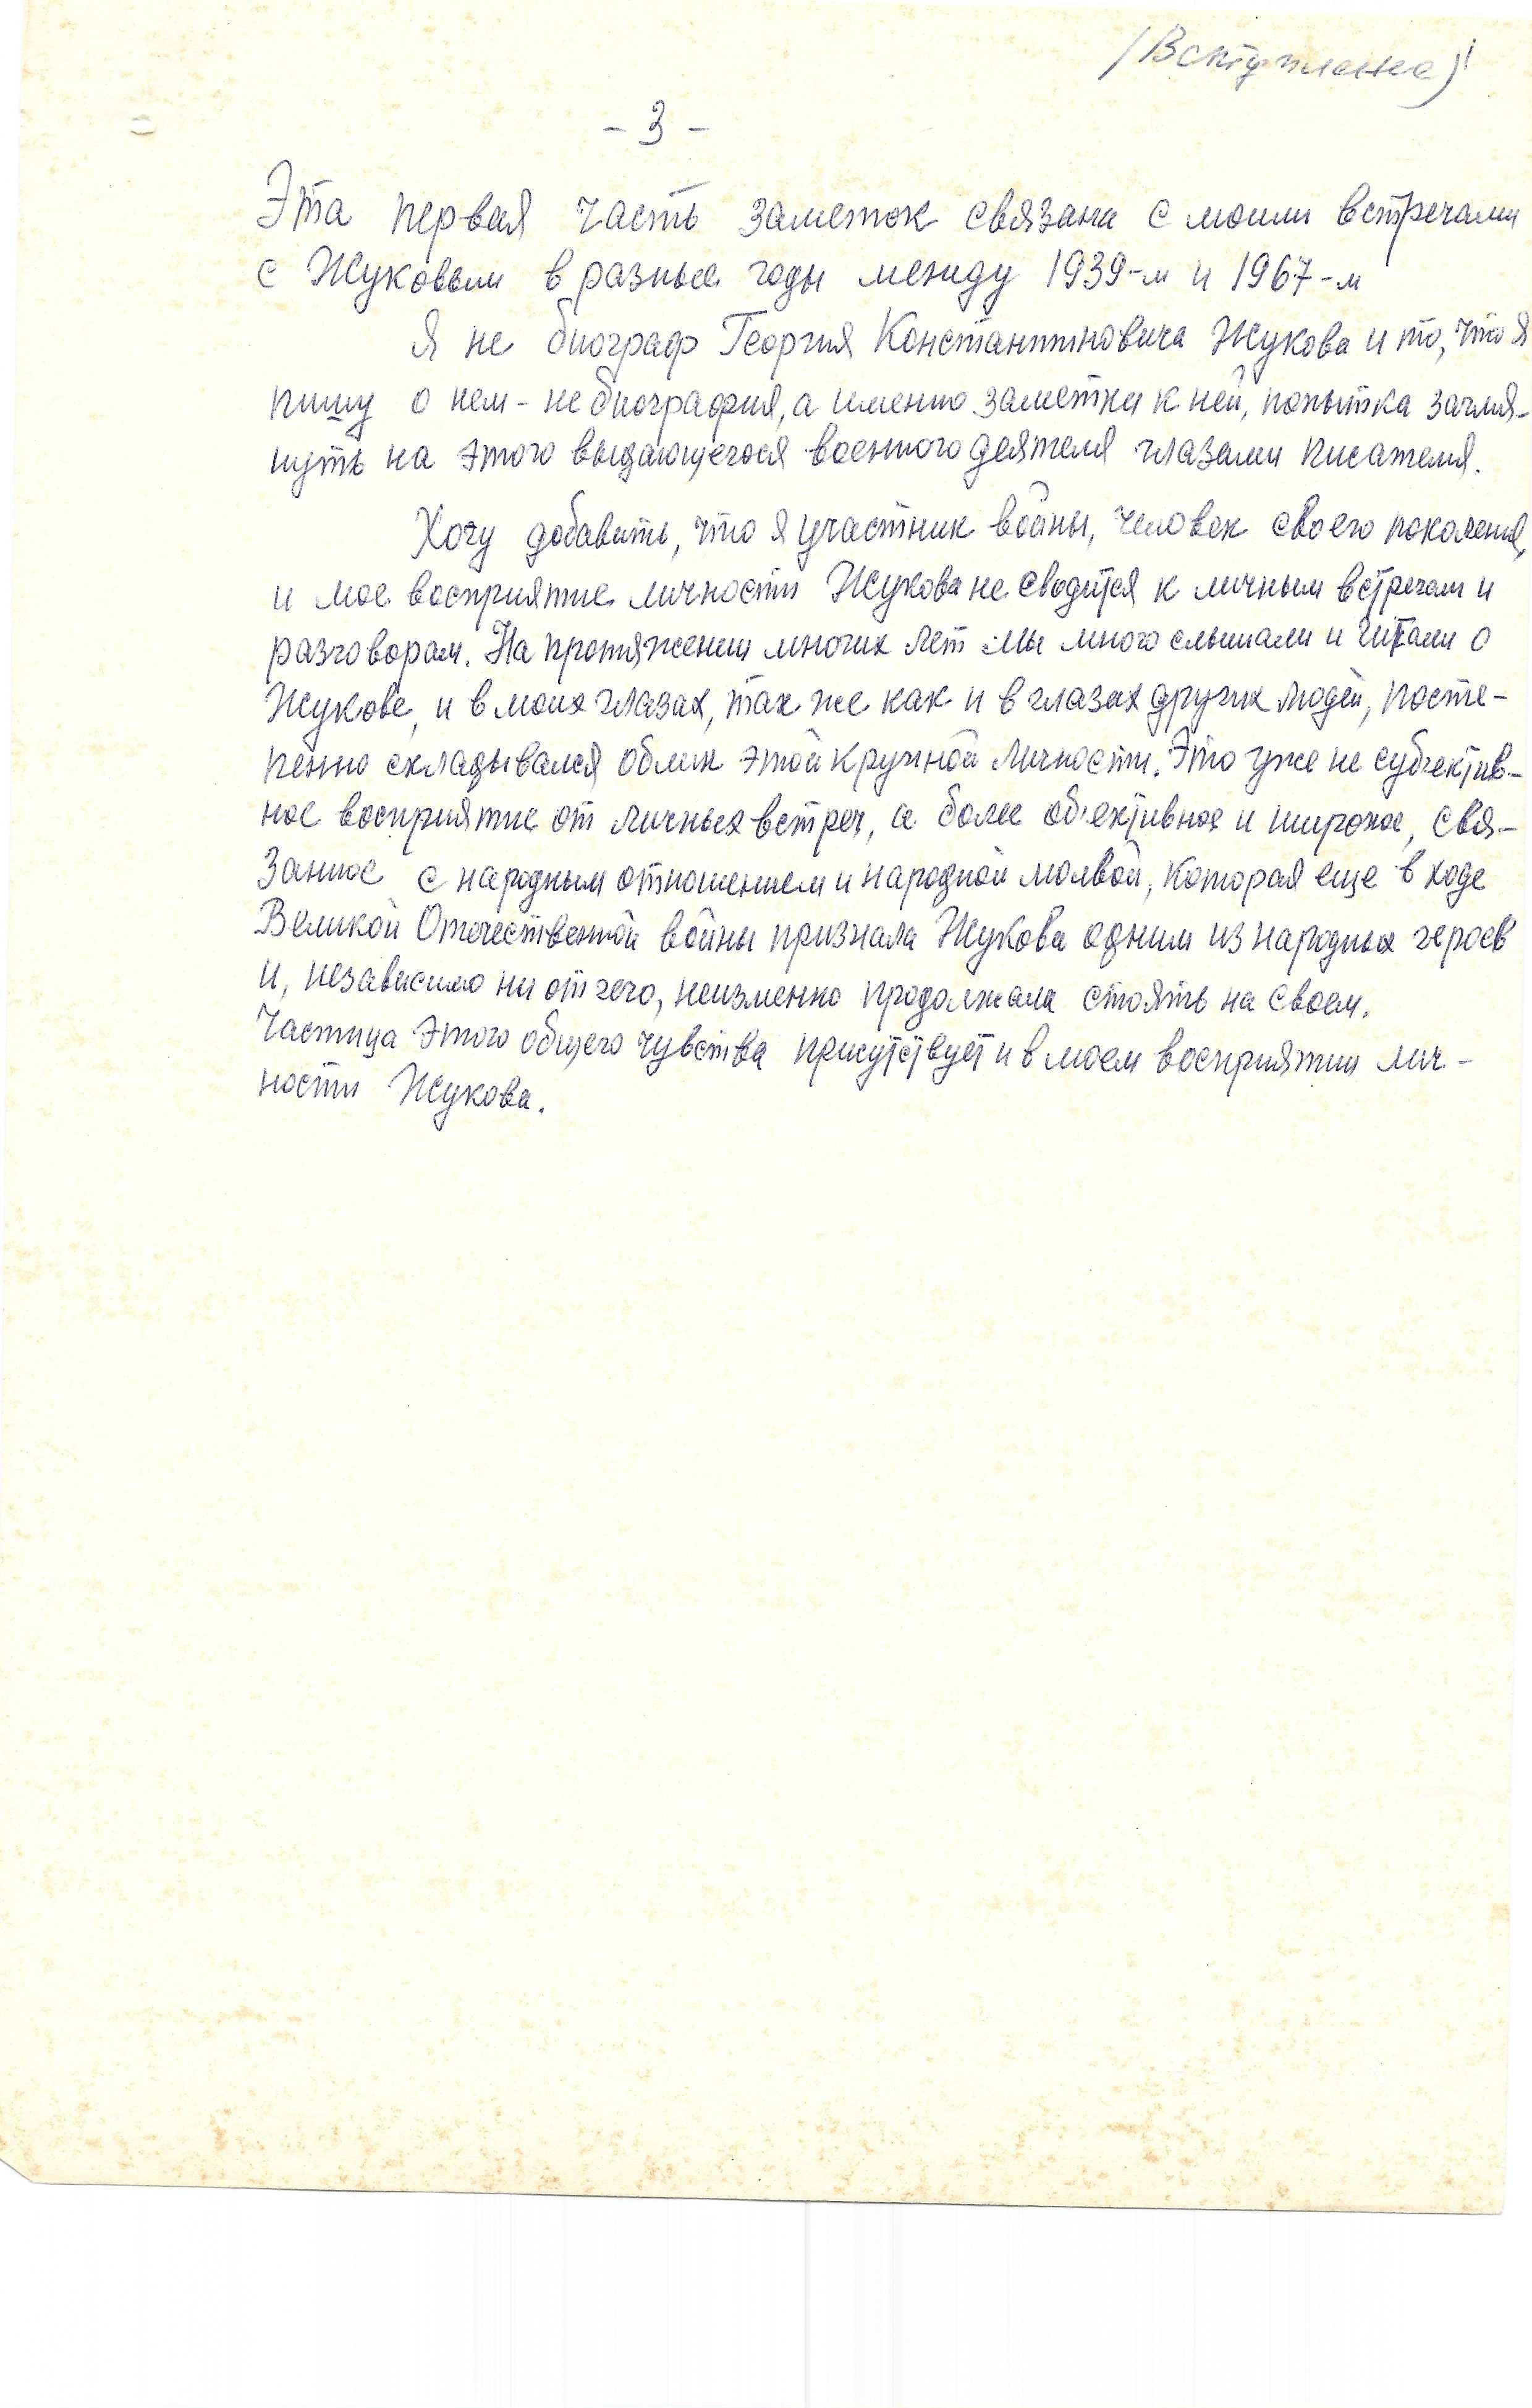 (Вступление)
- 3 -
Эта первая часть заметок связана с моими встречами
с Жуковым в разные годы между 1939-м и 1967-м
Я не биограф Георгия Константиновича Жукова и то, что я
пишу о нем - не биография, а именно заметки к ней, попытка загля-
нуть на этого выдающегося военного деятеля глазами писателя.
Хочу добавить, что я участник войны, человек своего поколения,
и мое восприятие личности Жукова не сводится к личным встречам и
разговорам. На протяжении многих лет мы много слышали и читали о
Жукове, и в моих глазах, так же как и в глазах других людей, посте-
пенно складывался облик этой крупной личности. Это уже не субъектив-
ное восприятие от личных встреч, а более об'ективное и широкое, свя-
занное с народным отношением и народной молвой, которая еще в ходе
Великой Отечественной войны признала Жукова одним из народных героев
и, независимо ни от чего, неизменно продолжала стоять на своем.
Частица этого общего чувства присутствует и в моем восприятии лич-
ности Жукова.